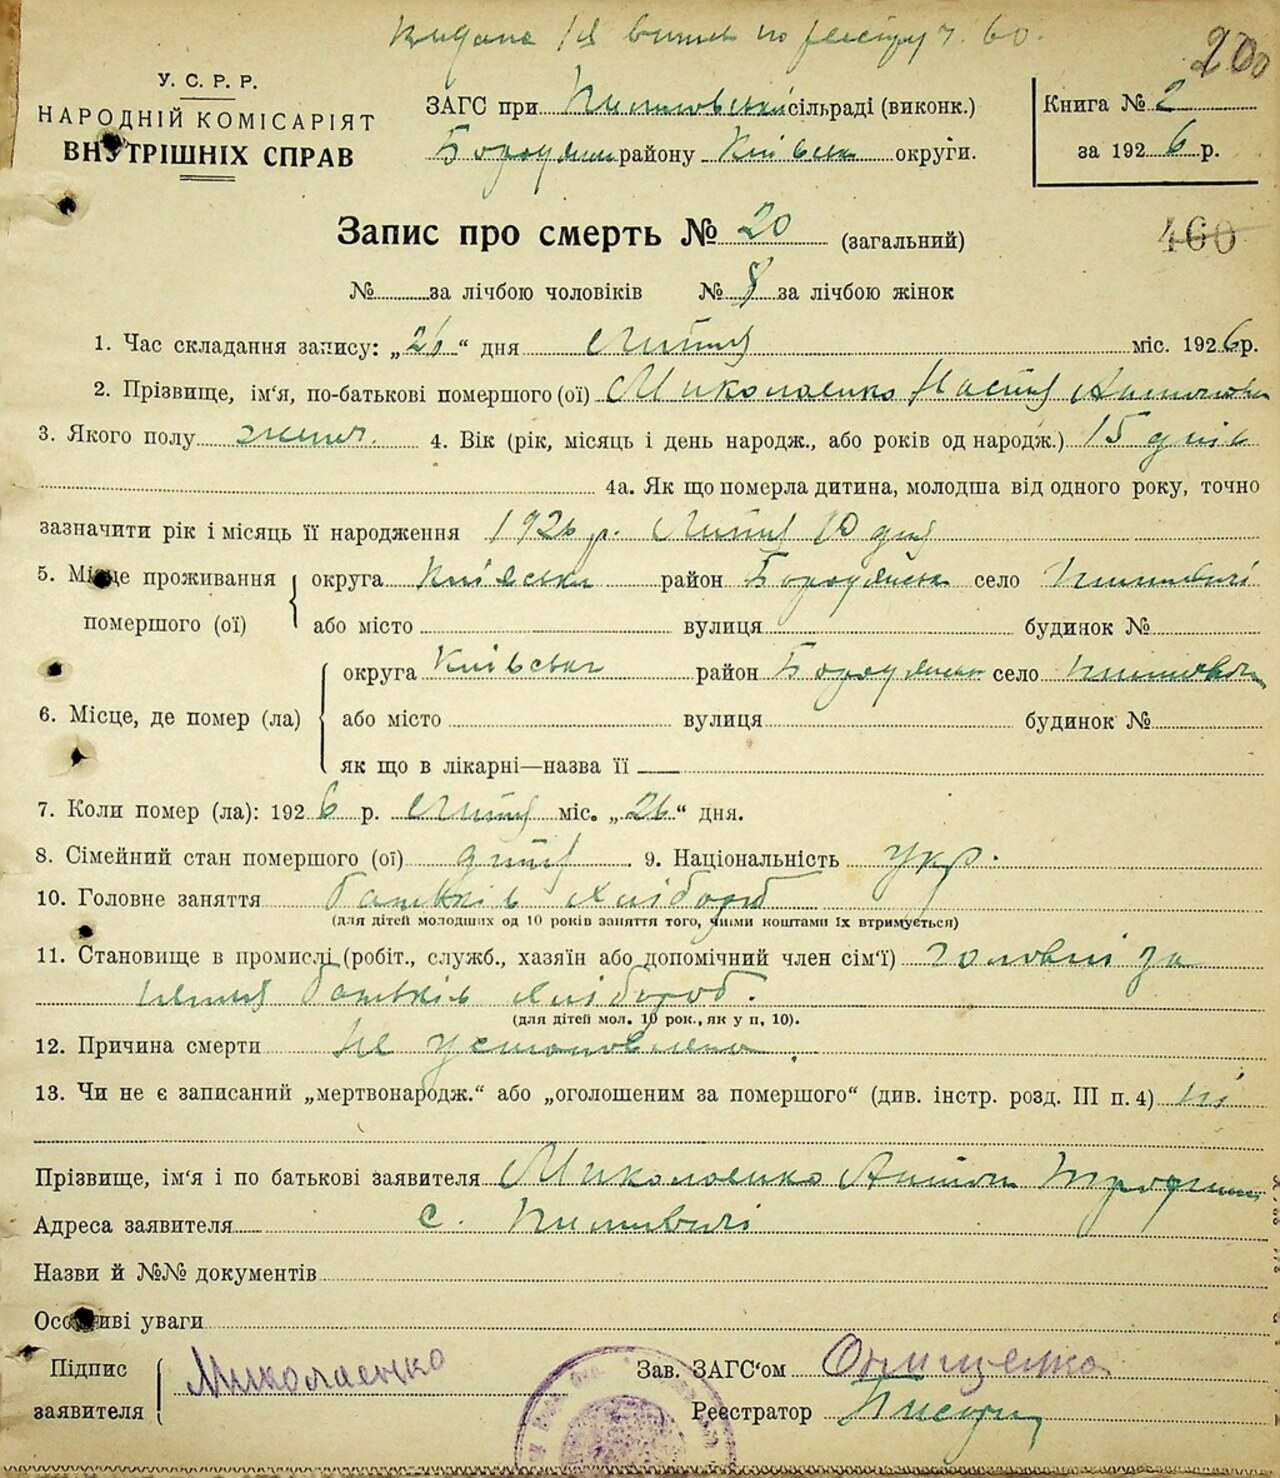 Видана
по реєстру ч. 60.
200
У. С. Р. Р.
НАРОДНІЙ КОМІСАРІЯТ
ВНУТРІШНІХ СПРАВ
ЗАГС при сільраді (виконк.)
Бородянск району Київськ округи.
Книга № 2
за 1926 р.
Запис про смерть № 20 (загальний)
460
№ за лічбою чоловіків № 8 за лічбою жінок
1. Час складання запису: „26“ дня Липня міс. 1926 р.
2. Прізвище, ім‘я, по-батькові помершого (ої) Миколаенко Настя Антонівна
3. Якого полу жіноч. 4. Вік (рік, місяць і день народж., або років од народж.) 15 днів
4а. Як що померла дитина, молодша від одного року, точно
зазначити рік і місяць її народження 1926 р. Липня 10 дня
5. Місце проживання помершого (ої) округа Київська район Бородянськ село
або місто вулиця будинок №
6. Місце, де помер (ла) округа Київська район Бородянськ село
або місто вулиця будинок №
як що в лікарні—назва її
7. Коли помер (ла): 1926 р. Липня міс. „26“ дня.
8. Сімейний стан помершого (ої) дитя 9. Національність укр.
10. Головне заняття батьків хлібороб
(для дітей молодших од 10 років заняття того, чиїми коштами їх втримується)
11. Становище в промислі (робіт., служб., хазяїн або допомічний член сім‘ї) головні за
батьків хлібороб.
(для дітей мол. 10 рок., як у п, 10).
12. Причина смерти не установлено.
13. Чи не є записаний „мертвонародж.“ або „оголошеним за помершого“ (див. інстр. розд. III п. 4) ні
Прізвище, ім‘я і по батькові заявителя Миколаенко Антон
Адреса заявителя с.
Назви й №№ документів
Особливі уваги
Підпис заявителя Миколаенко
Зав. ЗАГС‘ом Онищенко
Реєстратор